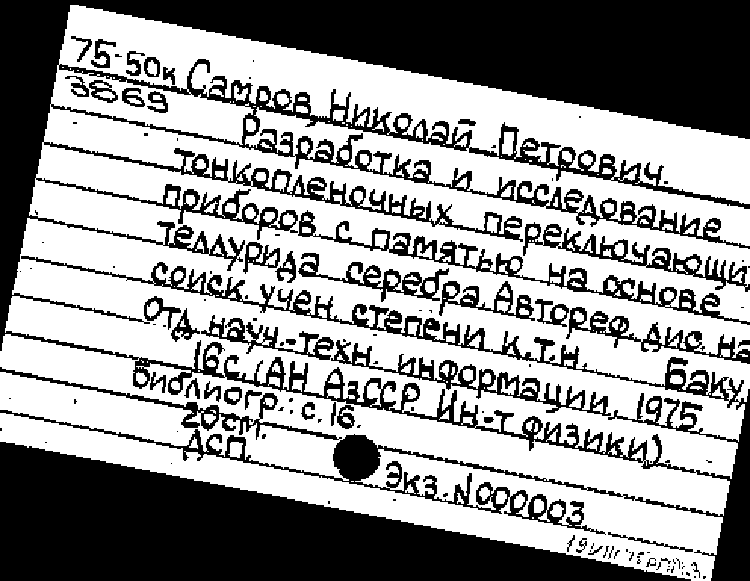 75-50к Самров, Николай Петрович.
3869
Разработка и исследование
тонкопленочных переключающи
приборов с памятью на основе
теллурида серебра. Автореф. дис. на
соиск. учен. степени к.т.н. Баку,
Отд. науч.-техн. информации, 1975.
16с. (АН АзССР. Ин-т физики).
Библиогр.: с. 16.
20см.
ДСП.
Экз. №000003
19 VIII 75